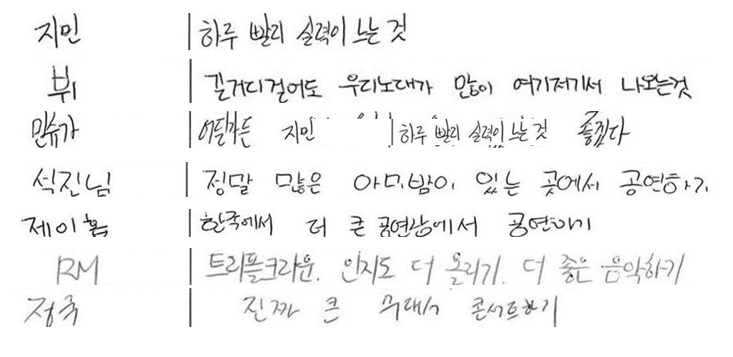 지민 하루 빨리 실력이 느는 것
뷔 길거디걸어도 우리노래가 많이 여기저기서 나오는것
민슈가 어딜가든 지민 하루 빨리 실력이 느는 것 좋겠다
석진님 정말 많은 아미밤이 있는 곳에서 공연하기
제이홉 한국에서 더 큰 공연장에서 공연하기
RM 트리플크라운. 인지도 더 올리기. 더 좋은 음악하기
정국 진짜 큰 무대서 콘서트하기